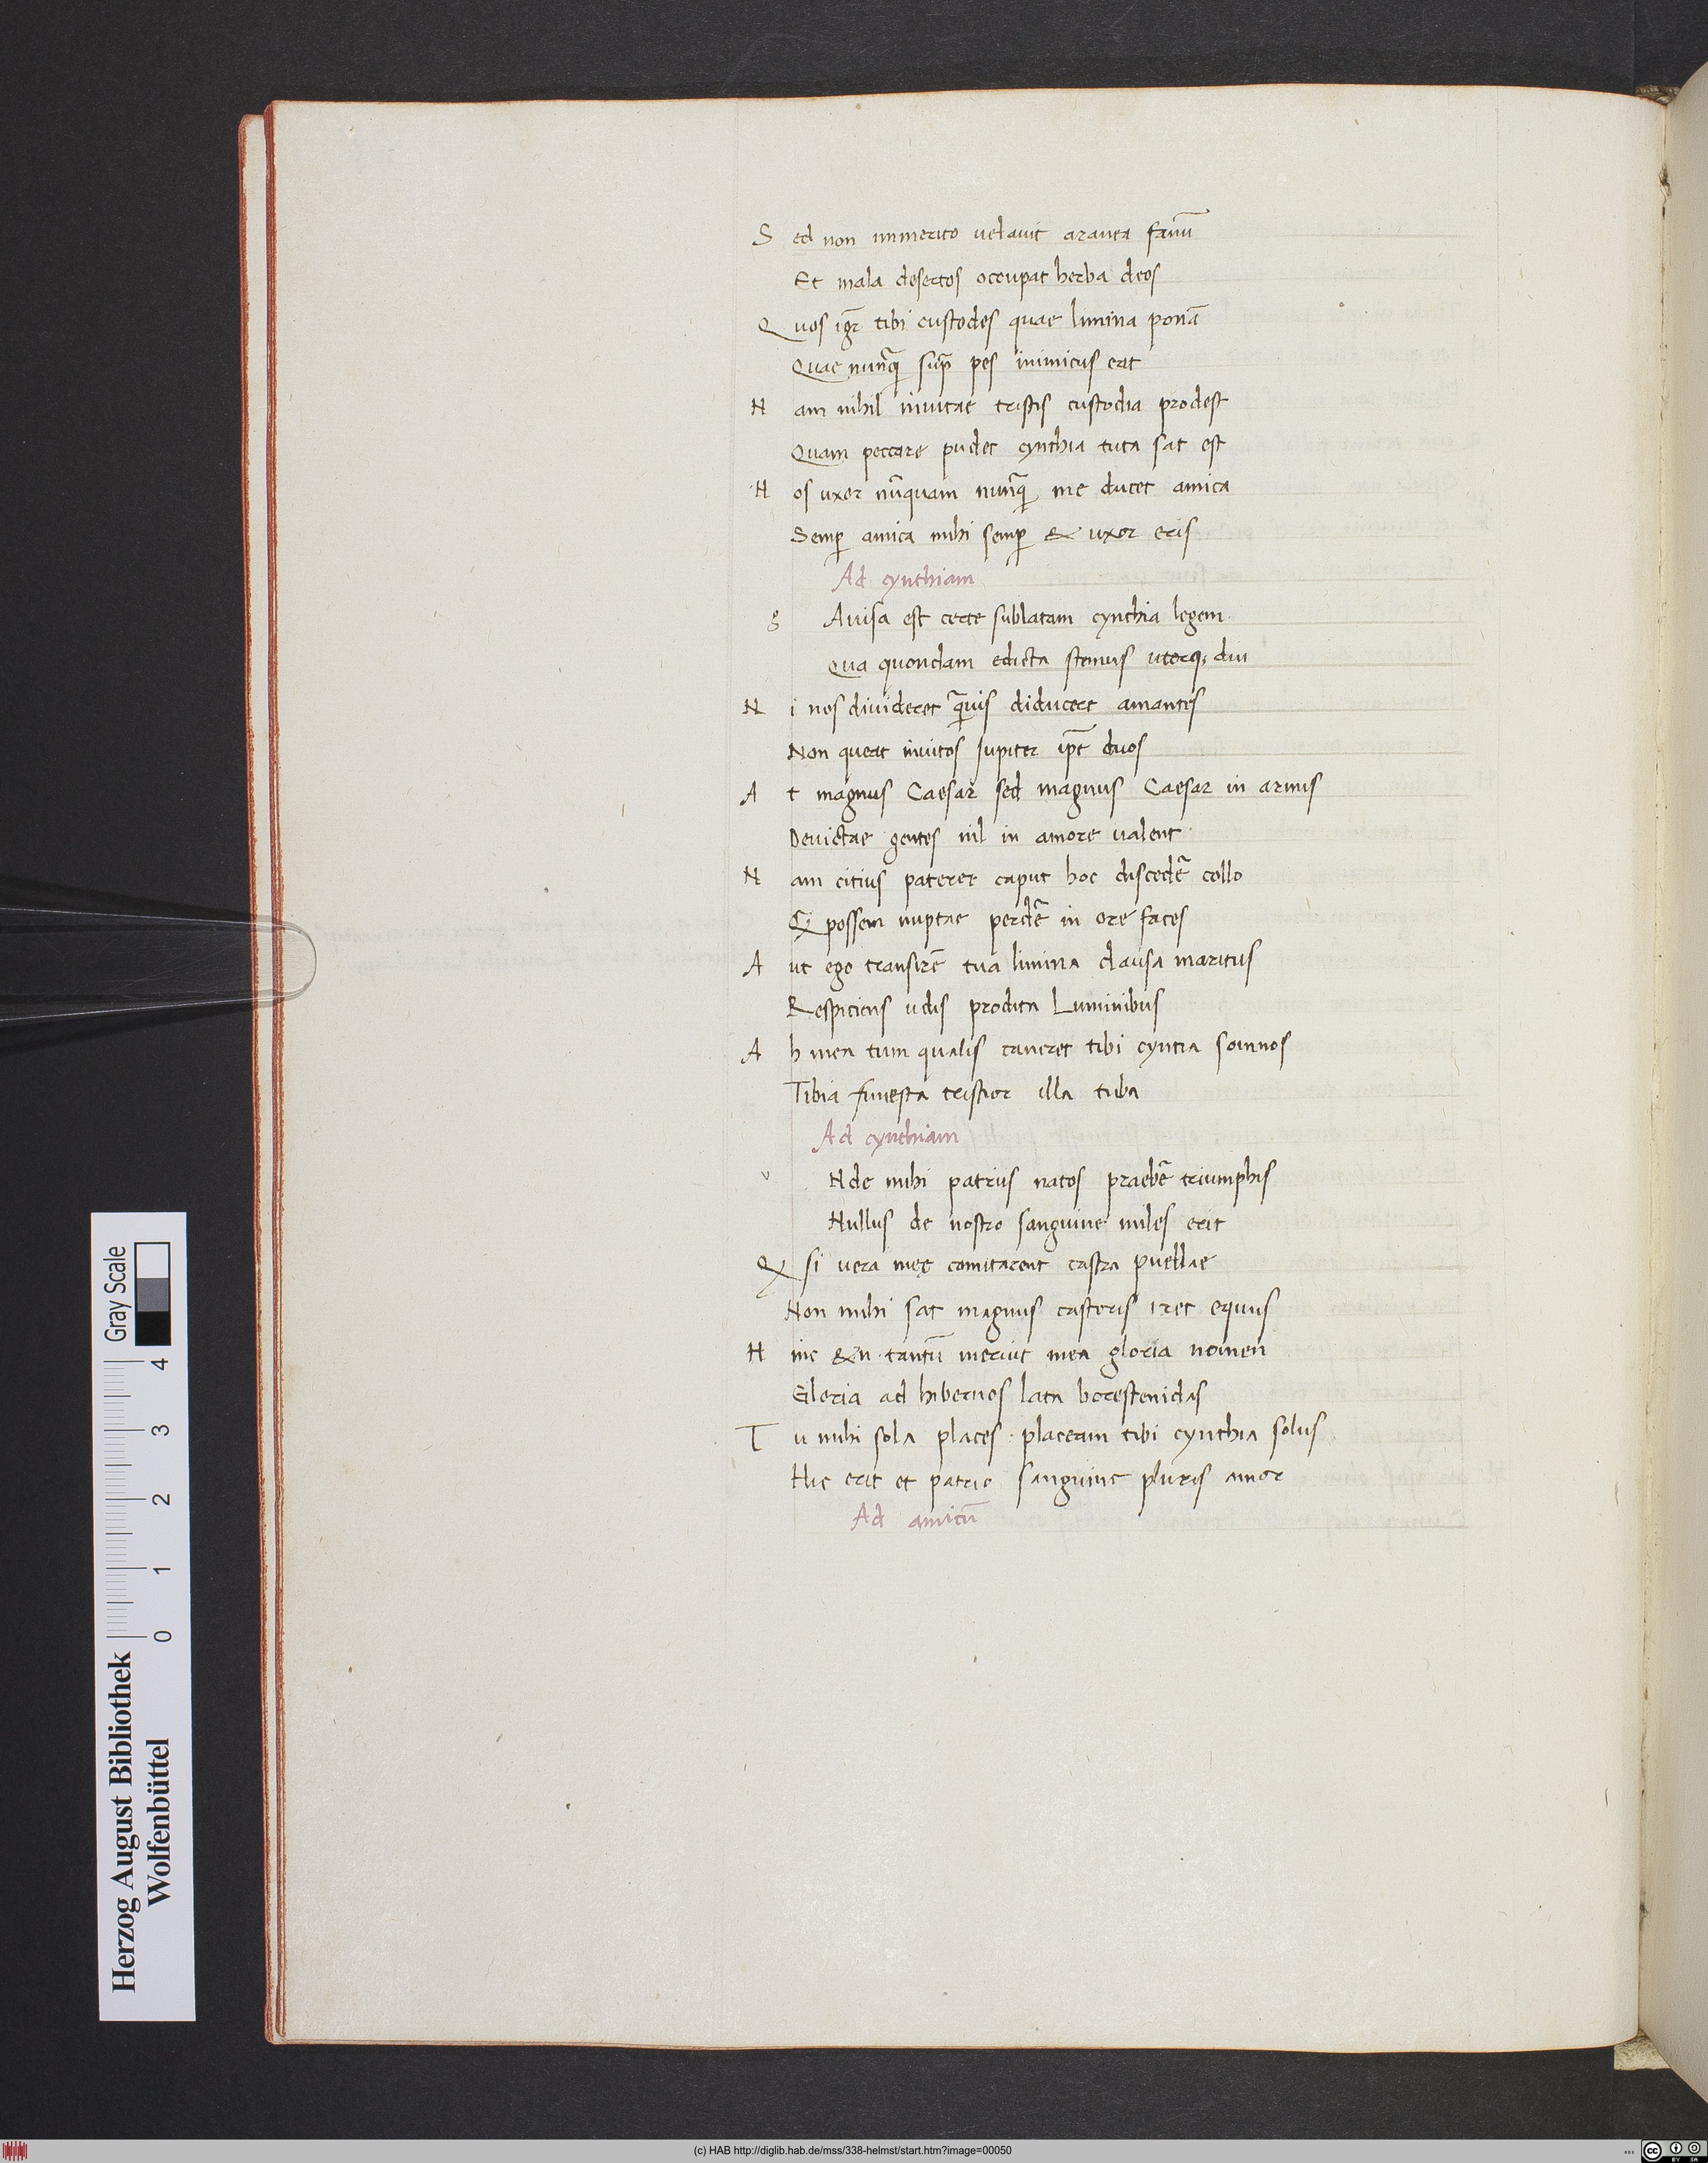 S ed non immerito uelauit aranea fanū
Et mala desertos occupat herba deos
Q uos igr̄ tibi custodes quae limina ponā
Quae nunq̄ sup̄ pes inimicus erit
N am nihil inuitae tristis custodia prodest
Quam peccare pudet cynthia tuta sat est
N os uxor nūquam nunq̄ me ducet amica
Semp̄ amica mihi semp̄ & uxor eris
Ad cynthiam
g Auisa est certe sublatam cynthia legem
Qua quondam edicta stemus uterq; diu
N i nos diuideret q̄uis diducere amantes
Non queat inuitos Iupiter ip̄e duos
A t magnus Caesar sed magnus Caesar in armis
Deuictae gentes nil in amore ualent
N am citius paterer caput hoc discedē collo
Q̄ possem nuptae perdē in ore faces
A ut ego transirē tua limina clausa maritus
Respiciens udis prodita Luminibus
A h mea tum qualis caneret tibi cyntia somnos
Tibia funesta tristior illa tuba
Ad cynthiam
v Nde mihi patrius natos praebē triumphis
Nullus de nostro sanguine miles erit
Q si uera meę comitarent castra puellae
Non mihi sat magnus castoris iret equus
H inc &n tantū meruit mea gloria nomen
Gloria ad hibernos lata borestenidas
T u mihi sola places · placeam tibi cynthia solus
Hic erit et patrio sanguine pluris amor
Ad amicū
Herzog August Bibliothek
Wolfenbüttel
0 1 2 3 4
Gray Scale
(c) HAB http://diglib.hab.de/mss/338-helmst/start.htm?image=00050